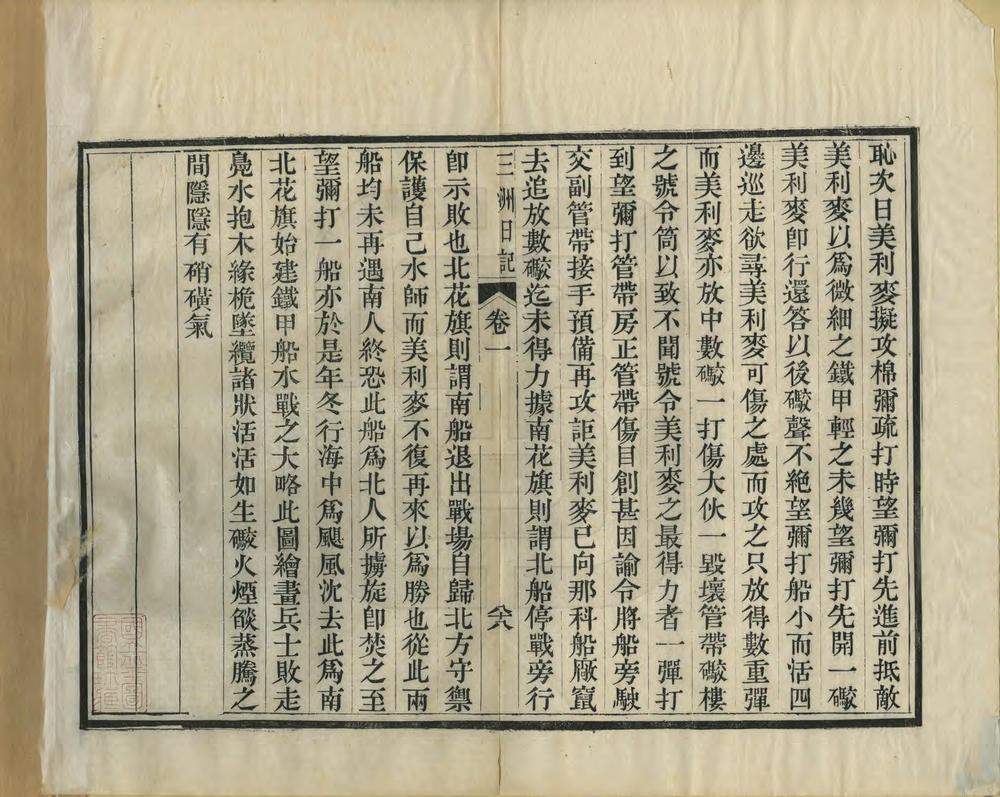 恥次日美利麥擬攻棉彌疏打時望彌打先進前抵敵
美利麥以爲微細之鐵甲輕之未幾望彌打先開一礮
美利麥卽行還答以後礮聲不絕望彌打船小而活四
邊巡走欲尋美利麥可傷之處而攻之只放得數重彈
而美利麥亦放中數礮一打傷大伙一毀壞管帶礮樓
之號令筒以致不聞號令美利麥之最得力者一彈打
到望彌打管帶房正管帶傷目創甚因諭令將船旁駛
交副管帶接手預備再攻詎美利麥已向那科船廠竄
去追放數礮迄未得力據南花旗則謂北船停戰旁行
三洲日記 卷一 六八
卽示敗也北花旗則謂南船退出戰場自歸北方守禦
保護自己水師而美利麥不復再來以爲勝也從此兩
船均未再遇南人終恐此船爲北人所擄旋卽焚之至
望彌打一船亦於是年冬行海中爲颶風沈去此爲南
北花旗始建鐵甲船水戰之大略此圖繪畫兵士敗走
鳧水抱木緣桅墜纜諸狀活活如生礮火煙燄蒸騰之
間隱隱有硝磺氣